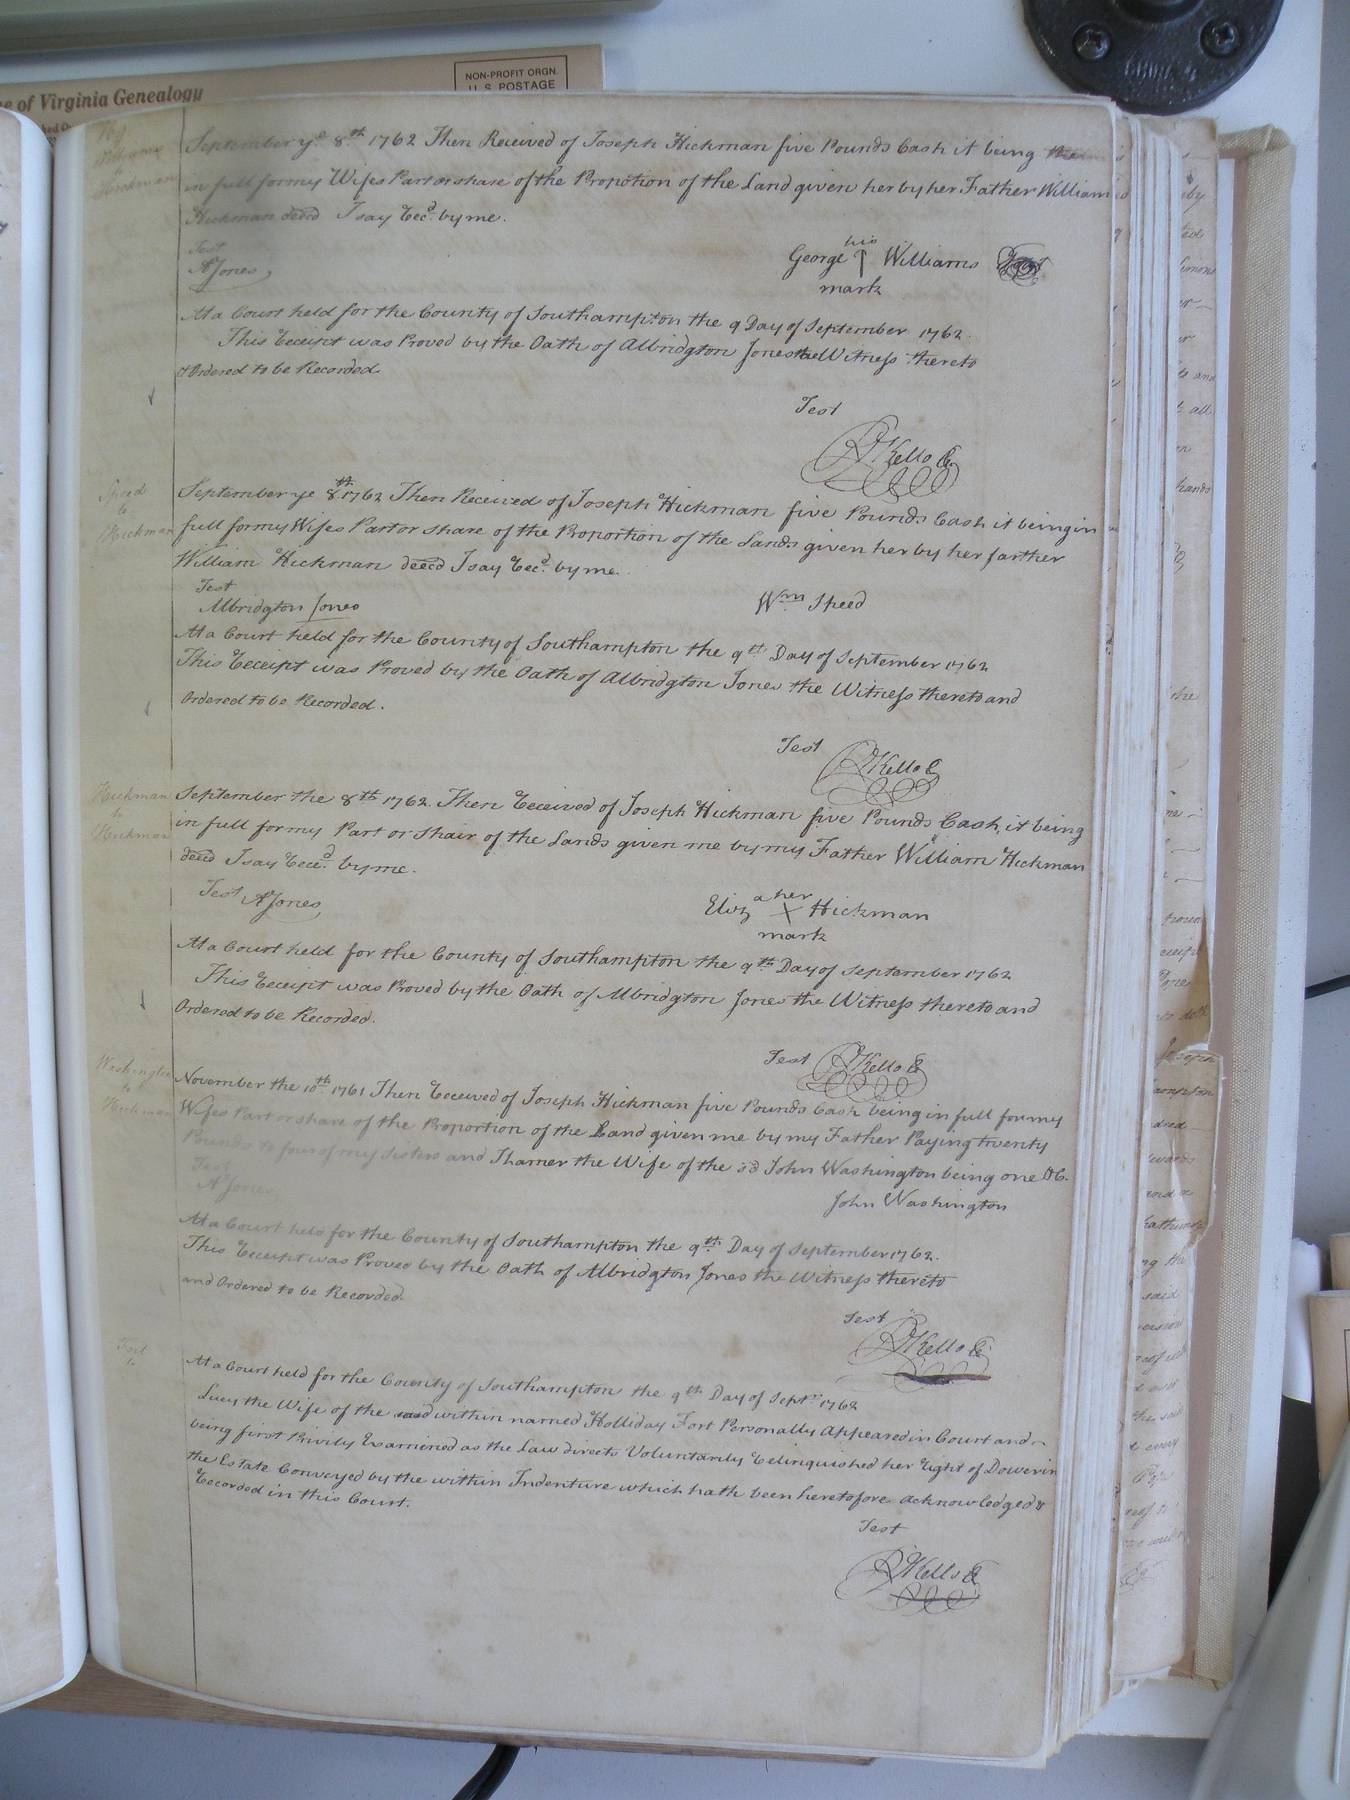 of Virginia Genealogy
NON-PROFIT ORGN.
U. S. POSTAGE
Williams
to
Hickman
September ye 8th 1762 Then Received of Joseph Hickman five Pounds Cash it being
in full for my Wifes Part or share of the Propotion of the Land given her by her Father William
Hickman deced I say Recd. by me.
Test
AJones,
his
George Williams
mark
At a Court held for the County of Southampton the 9 Day of September 1762.
This Receipt was Proved by the Oath of Albridgton Jones the Witness thereto
& Ordered to be Recorded.
Test
RKello Cl
Speed
to
Hickman
September ye 8th. 1762 Then Received of Joseph Hickman five Pounds Cash it being in
full for my Wifes Part or share of the Proportion of the Lands given her by her farther
William Hickman deced I say Recd. by me.
Test
Albridgton Jones
Wm Speed
At a Court held for the County of Southampton the 9th Day of September 1762
This Receipt was Proved by the Oath of Albridgton Jones the Witness thereto and
Ordered to be Recorded.
Test
RKello Cl
Hickman
to
Hickman
September the 8th 1762. Then Received of Joseph Hickman five Pounds Cash, it being
in full for my Part or Shair of the Lands given me by my Father William Hickman
deced I say Recd. by me.
Test AJones,
Eliza her X Hickman
mark
At a Court held for the County of Southampton the 9th Day of September 1762
This Receipt was Proved by the Oath of Albridgton Jones the Witness thereto and
Ordered to be Recorded.
Test RKello Cl
Washington
to
Hickman
November the 10th 1761 Then Received of Joseph Hickman five Pounds Cash being in full for my
Wifes Part or share of the Proportion of the Land given me by my Father Paying twenty
Pounds to four of my Sisters and Thamer the Wife of the sd John Washington being one &C.
Test
AJones,
John Washington
At a Court held for the County of Southampton the 9th Day of September 1762.
This Receipt was Proved by the Oath of Albridgton Jones the Witness thereto
and Ordered to be Recorded.
Test
RKello Cl
Fort
to
At a Court held for the County of Southampton the 9th Day of Septr 1762
Lucy the Wife of the said within named Holliday Fort Personally Appeared in Court and
being first Privily Examined as the Law directs Voluntarily Relinquished her Right of Dower in
the Estate Conveyed by the within Indenture which hath been heretofore acknowledged &
Recorded in this Court.
Test
RKello Cl